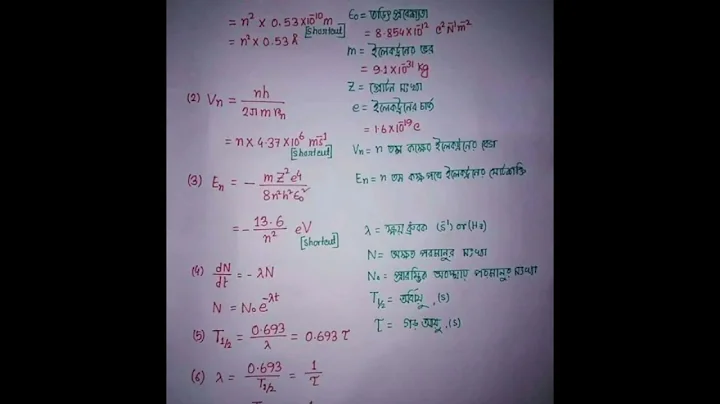 = n² × 0.53×10⁻¹⁰ m [shortcut]
= n² × 0.53 Å
ε₀ = তড়িৎ প্রবেশ্যতা
= 8.854×10⁻¹² C² N⁻¹ m⁻²
m = ইলেকট্রনের ভর
= 9.1×10⁻³¹ kg
Z = প্রোটন সংখ্যা
e = ইলেকট্রনের চার্জ
= 1.6×10⁻¹⁹ C
(2) Vn = nh / 2πmrn
= n × 4.37×10⁶ ms⁻¹ [shortcut]
Vn = n তম কক্ষের ইলেকট্রনের বেগ
(3) En = - mZ²e⁴ / 8n²h²ε₀²
= - 13.6 / n² eV [shortcut]
En = n তম কক্ষ পথে ইলেকট্রনের মোটশক্তি
(4) dN/dt = - λN
N = N₀e^-λt
λ = ক্ষয় ধ্রুবক (s⁻¹) or (Hz)
N = অক্ষত পরমানুর সংখ্যা
N₀ = প্রারম্ভিক অবস্থায় পরমানুর সংখ্যা
T1/2 = অর্ধায়ু, (s)
τ = গড় আয়ু, (s)
(5) T1/2 = 0.693 / λ = 0.693 τ
(6) λ = 0.693 / T1/2 = 1 / τ